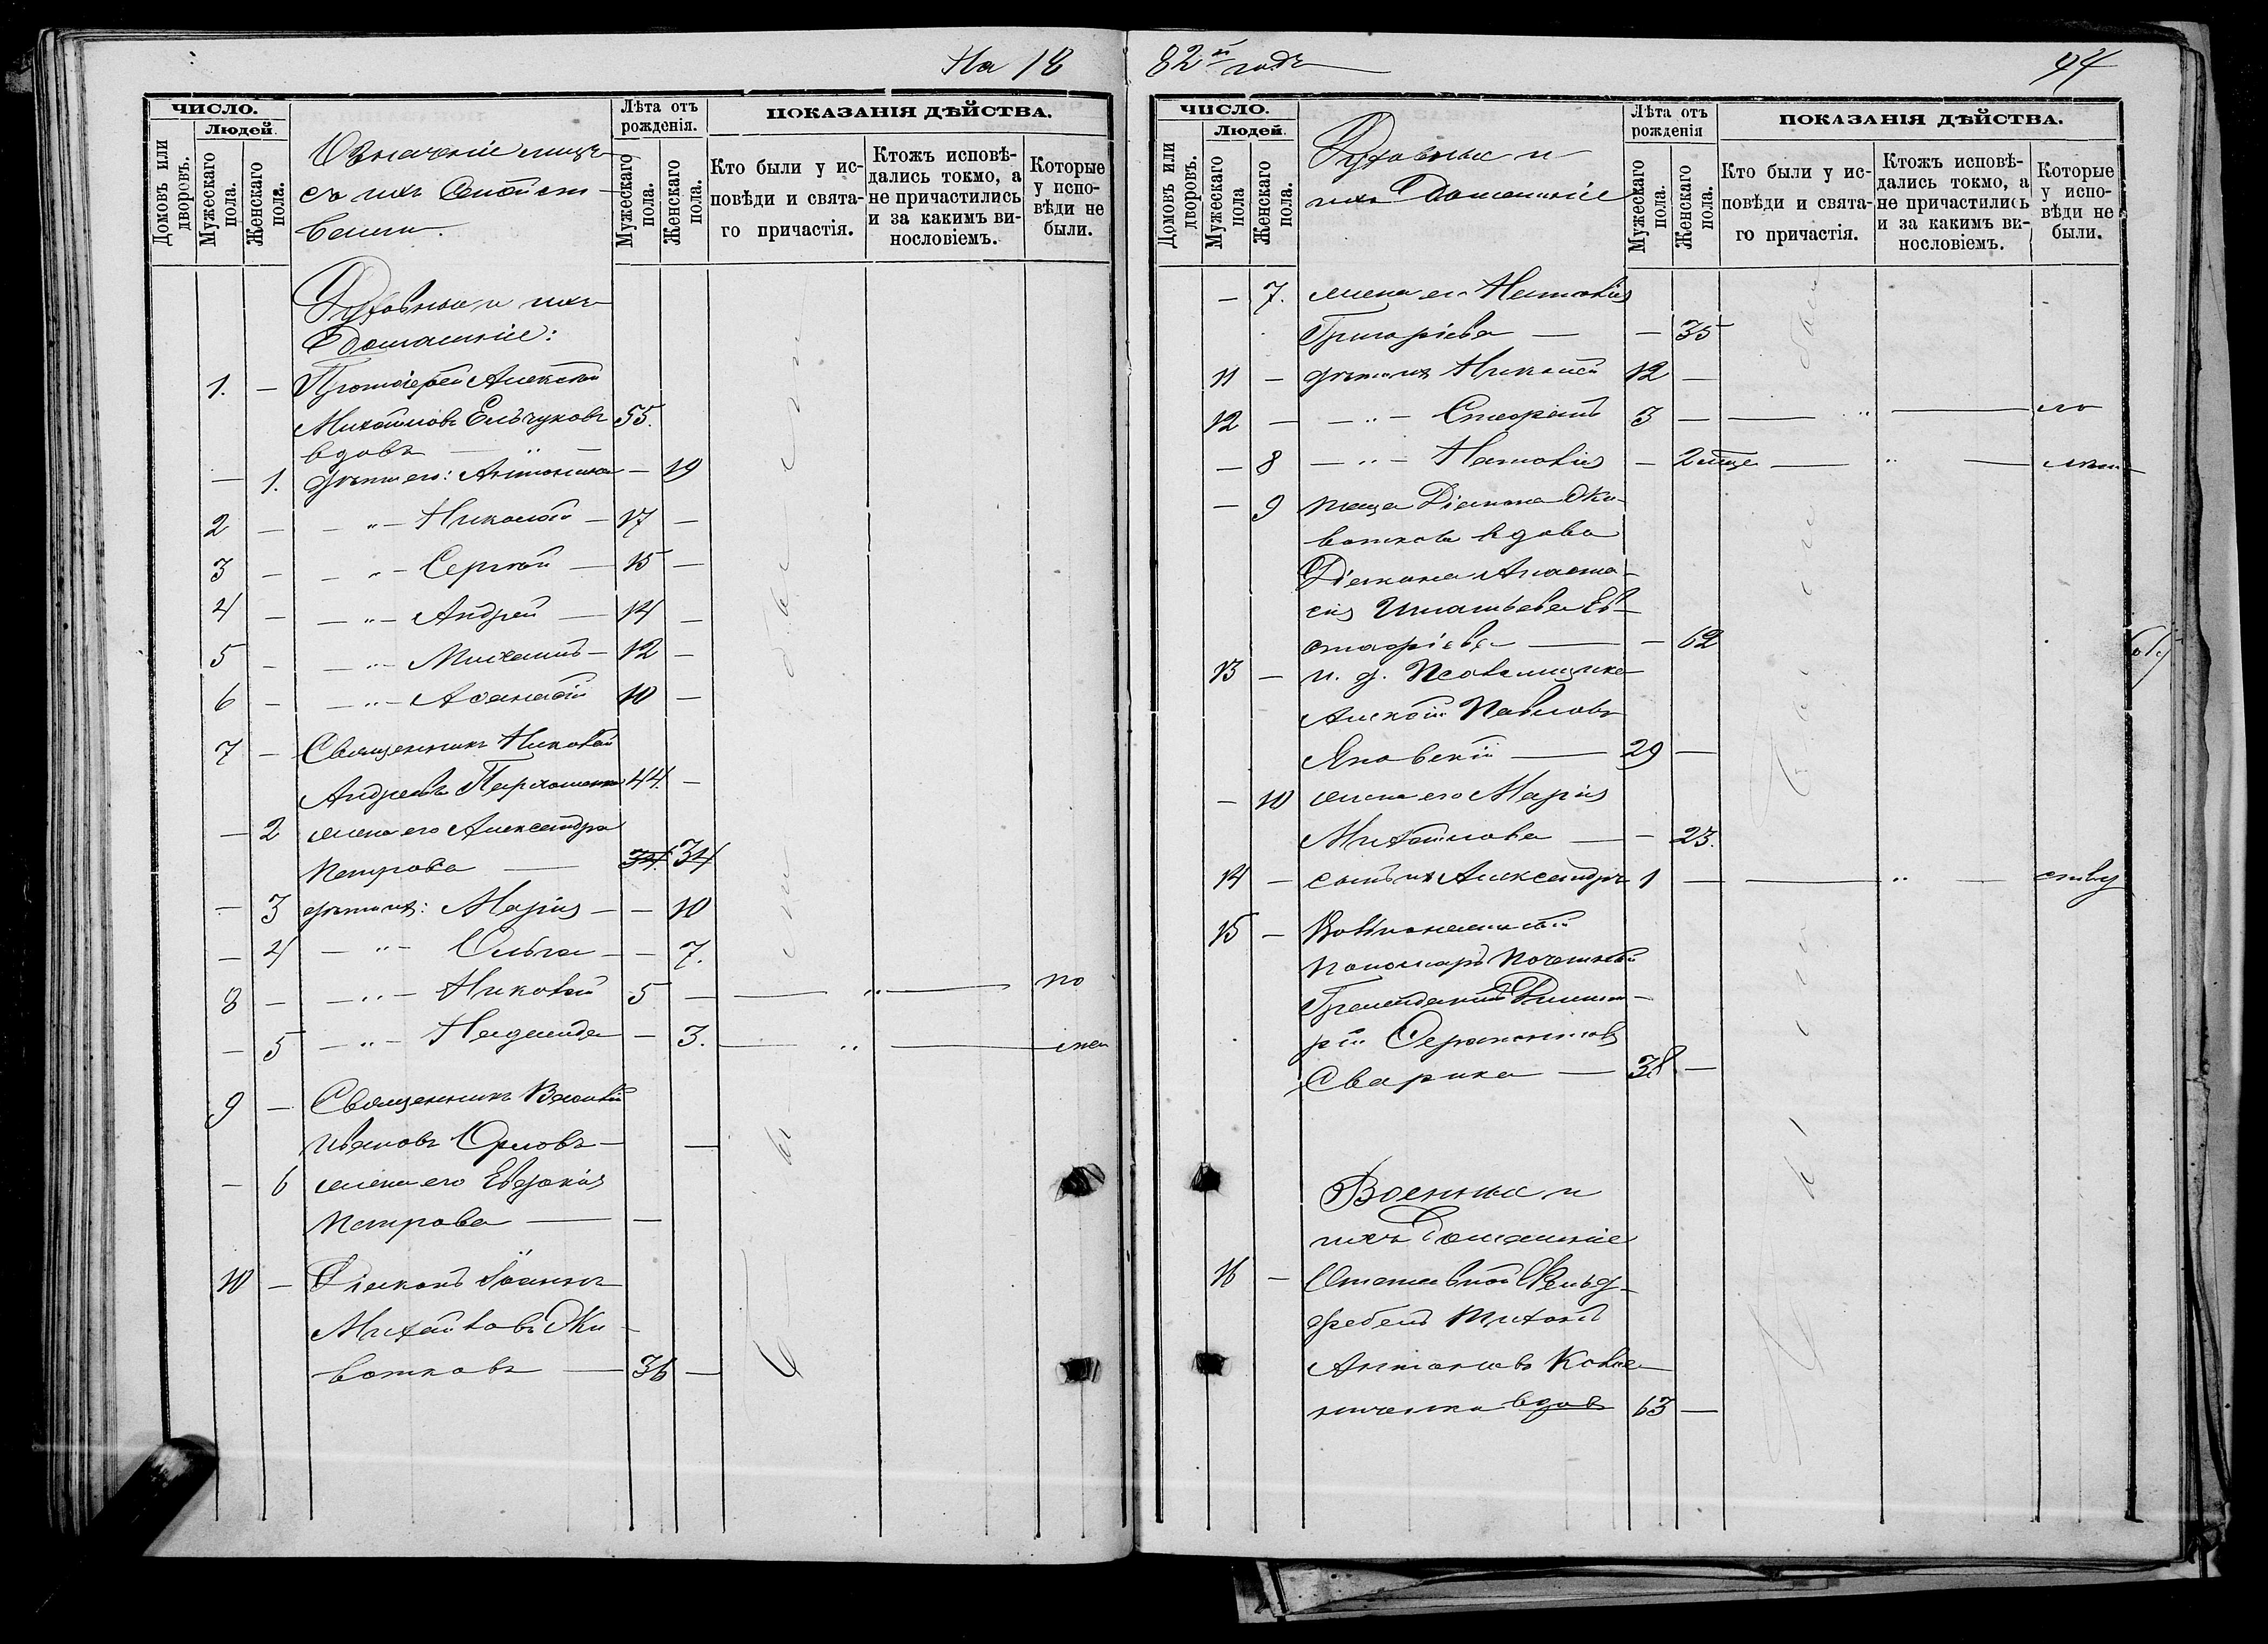 На 18
ЧИСЛО.
Домовъ или дворовъ.
Людей.
Мужескаго пола.
Женскаго пола.
Означеніе лицъ
съ ихъ Семейст-
вами.
Лѣта отъ рожденія.
Мужескаго пола.
Женскаго пола.
ПОКАЗАНІЯ ДѢЙСТВА.
Кто были у ис-
повѣди и свята-
го причастія.
Ктожъ исповѣ-
дались токмо, а
не причастились
и за какимъ ви-
нословіемъ.
Которые
у испо-
вѣди не
были.
Духовные и ихъ
Домашніе:
1. — Протоіерей Алексѣй
Михайловъ Ельчуковъ 55.
вдовъ
— 1. дѣти его: Антонина — 19
2 — — „ — Николай — 17 —
3 — — „ — Сергѣй — 15 —
4 — — „ — Андрей — 14 —
5 — — „ — Михаилъ — 12 —
6 — — „ — Аѳанасій 10 —
7 — Священникъ Николай
Андреевъ Пархоменко 44. —
— 2 жена его Александра
Петрова — 34. 34
— 3 дѣти ихъ: Марія — — 10
— 4 — „ — Ольга — — 7.
8 — — „ — Николай 5 — — „ — по
— 5 — „ — Надежда — 3. — „ — мал
9 — Священникъ Василій
Ивановъ Орловъ — —
— 6 жена его Евдокія
Петрова — —
10 — Діаконъ Іоаннъ
Михайловъ Жи-
вотковъ — 36 —
были
82й годъ
44
ЧИСЛО.
Домовъ или дворовъ.
Людей.
Мужескаго пола
Женскаго пола.
Духовные и
ихъ Домашніе
Лѣта отъ рожденія
Мужескаго пола.
Женскаго пола.
ПОКАЗАНІЯ ДѢЙСТВА.
Кто были у ис-
повѣди и свята-
го причастія.
Ктожъ исповѣ-
дались токмо, а
не причастились
и за какимъ ви-
нословіемъ.
Которые
у испо-
вѣди не
были.
— 7. жена его Наталія
Григоріева — — 35
11 — дѣти ихъ Николай 12 —
12 — — „ — 3 — — „ — ло
— 8 — „ — Наталія — 2 — „ — лѣт—
— 9 теща Діакона Жи-
воткова вдова
Діакона Анаста-
сія Игнатьева Ев-
стафіева — — 62
13 — и. д. Псаломщика
Алексѣй Павловъ
Яновскій — 29 —
— 10 жена его Марія
Михайлова — — 23.
14 — сынъ ихъ Александръ 1 — — „ — ству
15 —
пономарь почетный
Гражданинъ Димит-
рій
Сварика — 38 —
Военные и
ихъ Домашніе
16 — Отставной Фельд-
фебель Тихонъ
Антоновъ Кова-
вдовъ 63 —
были